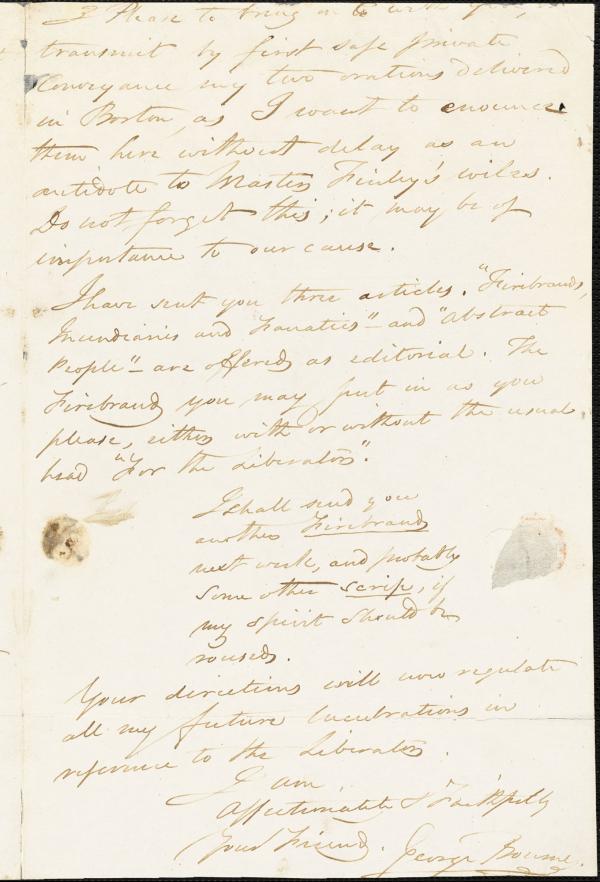 Please to bring with you,
transmit by first safe private
Conveyance my two orations delivered
in Boston, as I want to enounce
them here without delay as an
antidote to Master Finley's wiles.
Do not forget this; it may be of
importance to our cause.
I have sent you three articles. "Firebrands,
Incendiaries and Fanatics" – and "Abstract
People" – are offered as editorial. The
Firebrand you may put in as you
please, either with or without the usual
head "For the Liberator".
I shall send you
another Firebrand
next week, and probably
some other scrip, if
my spirit should be
roused.
Your directions will now regulate
all my future lucubrations in
reference to the Liberator.
I am
Affectionately & Faithfully
Your Friend. George Bourne.